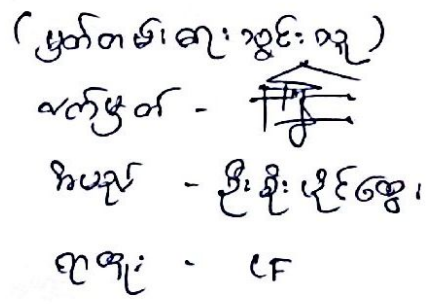 (မှတ်တမ်းရေးသွင်းသူ)
လက်မှတ် -
အမည် - ဦးစိုးပိုင်ထွေး
ရာထူး - CF